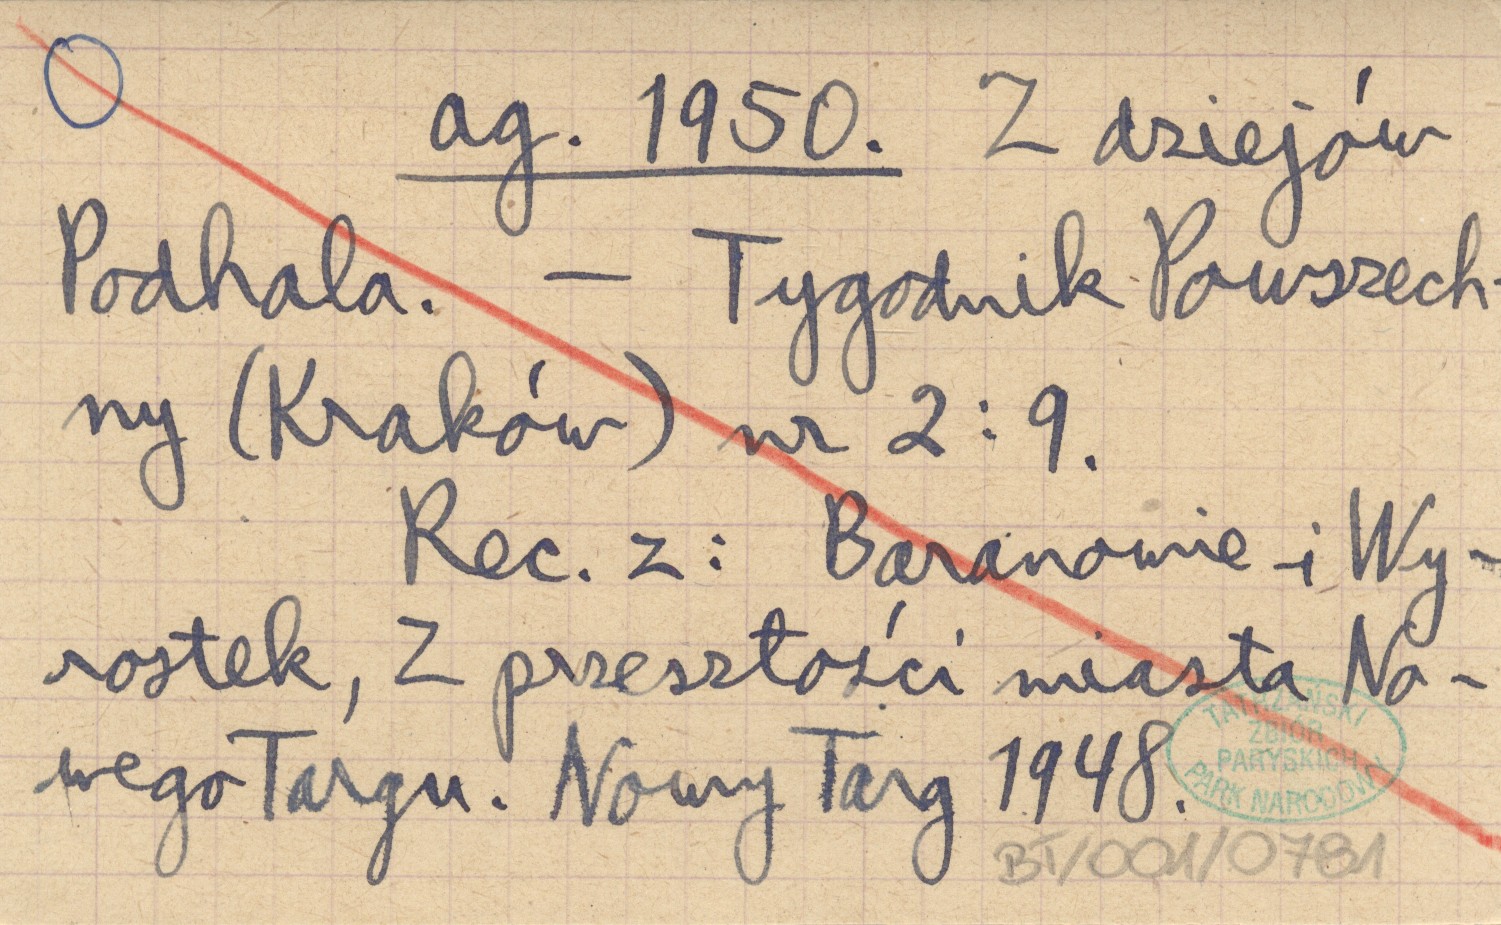 ag. 1950. Z dziejów
Podhala. — Tygodnik Powszech-
ny (Kraków) nr 2 : 9.
Rec. z : Baranowie i Wy-
rostek, Z przeszłości miasta No-
wego Targu. Nowy Targ 1948.
TATRZAŃSKI
ZBIÓR
PARYSKICH
PARK NARODOWY
BT/001/0781